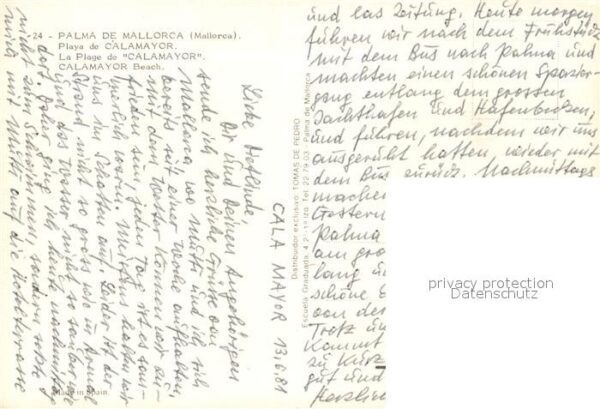 -24 - PALMA DE MALLORCA (Mallorca).
Playa de CALAMAYOR.
La Plage de "CALAMAYOR".
CALAMAYOR Beach.
CALA MAYOR 13.6.81
Liebe Dietlinde,
Dir und Deinen Angehörigen
sende ich herzliche Grüße von
Mallorca, wo Mutti und ich sich
bereits seit einer Woche aufhalten.
Mit dem Wetter können wir zu-
frieden sein, jeden Tag ist es son-
nig
uns im Schatten auf. Leider ist der
Strand nicht so gross wie in Arenal
und das Wasser nicht so sauber wie
dort. Daher ging ich heute nachmittag
nicht zum schwimmen, sondern setzte
mich mit Mutti auf die Hotelterrasse
und las Zeitung. Heute morgen
führen wir nach dem Frühstück
mit dem Bus nach Palma und
machten einen schönen Spazier-
gang entlang dem grossen
Jachthafen und Hafenbecken,
und führen, nachdem wir uns
ausgeruht hatten, wieder mit
dem Bus zurück. Nachmittags
machen
Gestern
Palma
am gro
lang u
schöne
von de
Trotz un
kommt
zu kurz
gut und
Herzlich
Distribuidor exclusivo: TOMAS DE PEDRO
Escuela Graduada, 4 2.º 1º Izq. Tel. 22 79 93 Palma de Mallorca
Made in Spain.
privacy protection
Datenschutz